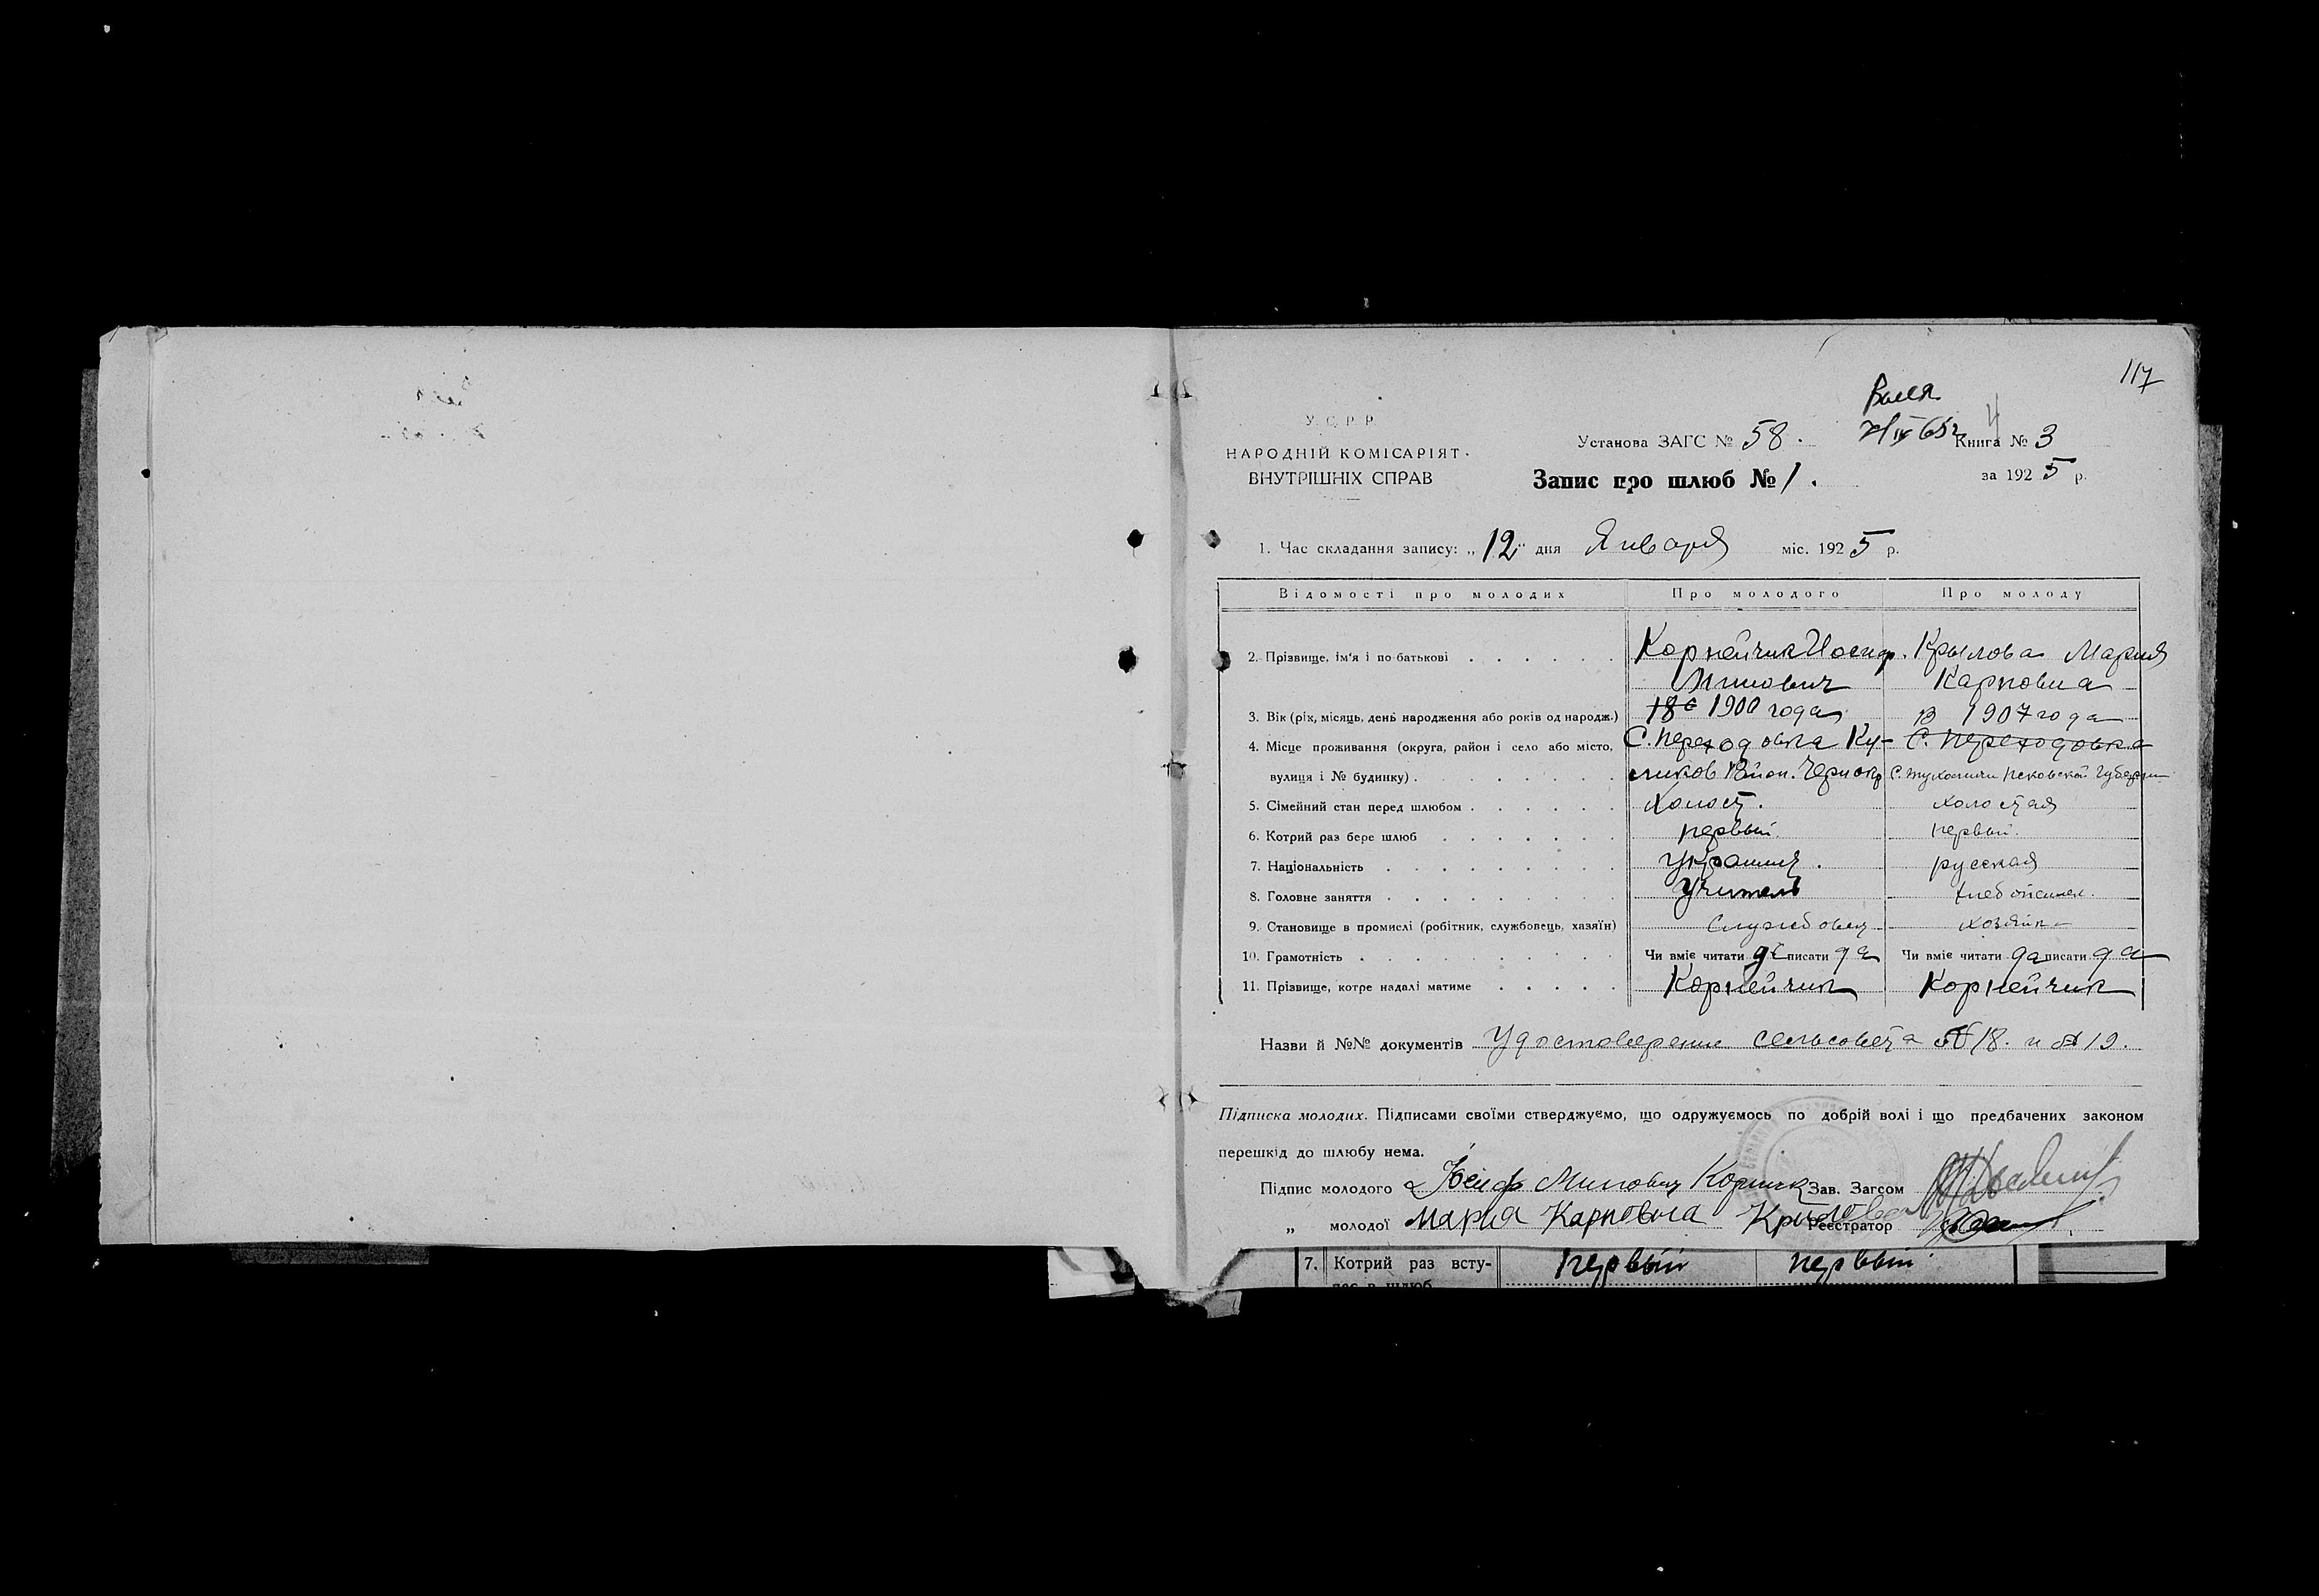 117
Валя
У. С. Р. Р.
НАРОДНІЙ КОМІСАРІЯТ
ВНУТРІШНІХ СПРАВ
Установа ЗАГС № 58.
Книга № 3
4
Запис про шлюб № 1.
за 1925 р.
1. Час складання запису: „12" дня Января міс. 1925 р.
Відомості про молодих Про молодого Про молоду
2. Прізвище, ім'я і по-батькові Корнейчик Иосиф Крылова Мария
Минович Карповна
3. Вік (рік, місяць, день народження або років од народж.) 18 с 1900 года в 1907 года
4. Місце проживання (округа, район і село або місто, С. Переходовка Ку- С. Переходовка
вулиця і № будинку) ликов район. Чернокр с. Псковской Губернии
5. Сімейний стан перед шлюбом Холост. холостая
6. Котрий раз бере шлюб первый. первый.
7. Національність украинец. русская
8. Головне заняття Учитель хлебопашец.
9. Становище в промислі (робітник, службовець, хазяїн) Службовец хозяйка
10. Грамотність Чи вміє читати да писати да Чи вміє читати да писати да
11. Прізвище, котре надалі матиме Корнейчик Корнейчик
Назви й №№ документів Удостоверение сельсовета № 18. и № 19.
Підписка молодих. Підписами своїми стверджуємо, що одружуємось по добрій волі і що предбачених законом
перешкід до шлюбу нема.
Підпис молодого Иосиф Минович Зав. Загсом
„ молодої Мария Карповна Крилова Реєстратор
7. Котрий раз всту- первый первый
пає в шлюб